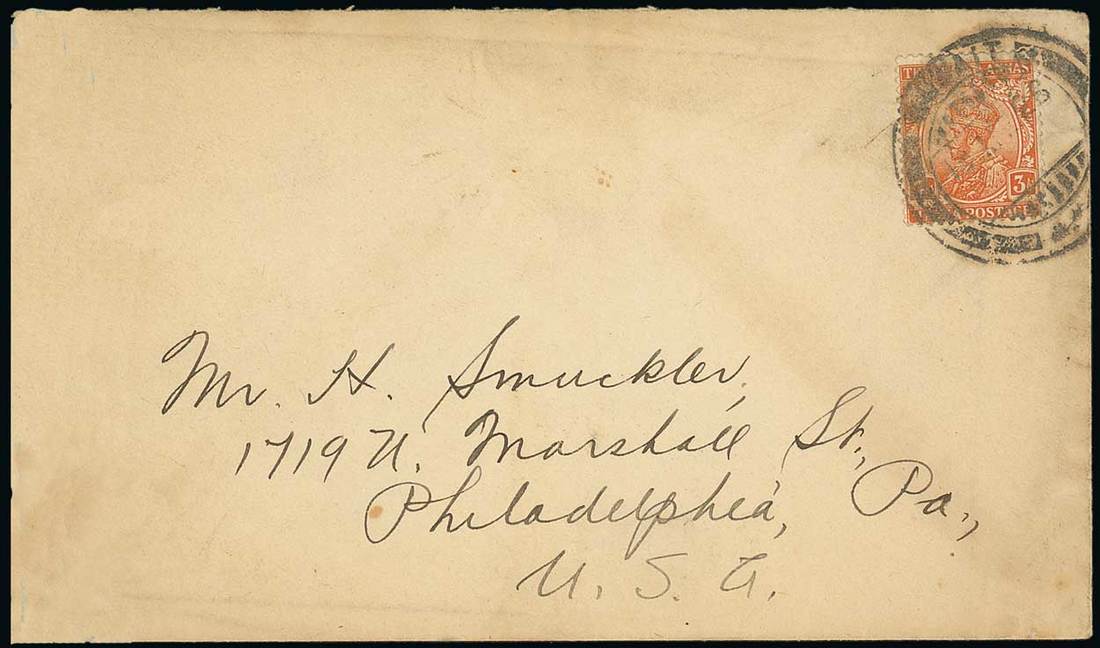 POSTAGE
3
Mr. H. Smuckler,
1719 N. Marshall St.,
Philadelphia, Pa.,
U. S. A.